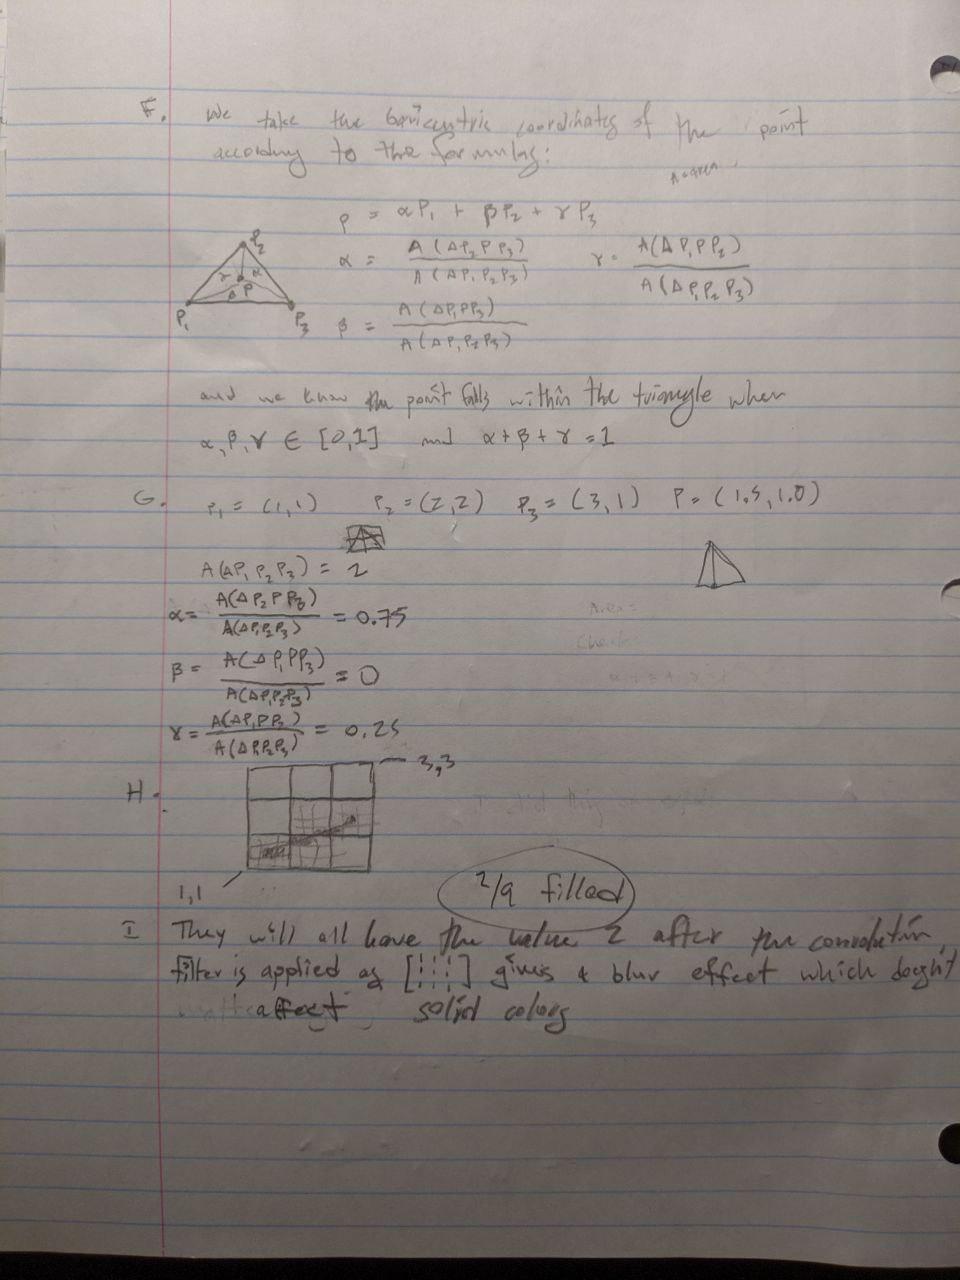 F. We take the baricentric coordinates of the point
according to the formulas:
A = area
P = αP₁ + βP₂ + γP₃
P₂
α = A(ΔP₂PP₃) / A(ΔP₁P₂P₃) γ = A(ΔP₁PP₂) / A(ΔP₁P₂P₃)
γ α
β P
P₁ P₃
β = A(ΔP₁PP₃) / A(ΔP₁P₂P₃)
and we know the point falls within the triangle when
α, β, γ ∈ [0,1] and α + β + γ = 1
G. P₁ = (1,1) P₂ = (2,2) P₃ = (3,1) P = (1.5, 1.0)
A(ΔP₁P₂P₃) = 2
α = A(ΔP₂PP₃) / A(ΔP₁P₂P₃) = 0.75
Area =
Check
β = A(ΔP₁PP₃) / A(ΔP₁P₂P₃) = 0
γ = A(ΔP₁PP₂) / A(ΔP₁P₂P₃) = 0.25
H. 3,3
1,1
2/9 filled
I They will all have the value 2 after the convolution
filter is applied as [⋮⋮⋮] gives a blur effect which doesn't
affect solid colors